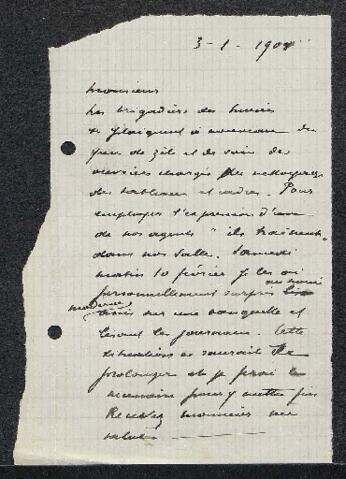 3-1-190
Monsieur
Les brigadiers des
se plaignent à nouveau du
peu de zèle et de soin des
ouvriers chargés des nettoyages
des tableaux et cadres. Pour
employer l'expression d'un
de nos agents "ils traînent"
dans nos salles. Samedi
matin 10 février je les ai
au musée
personnellement surpris
moderne
assis sur une banquette et
lisant les journaux. Cette
situation ne saurait se
prolonger et je prai le
nécessaire pour y mettre fin
Recevez monsieur mes
saluts